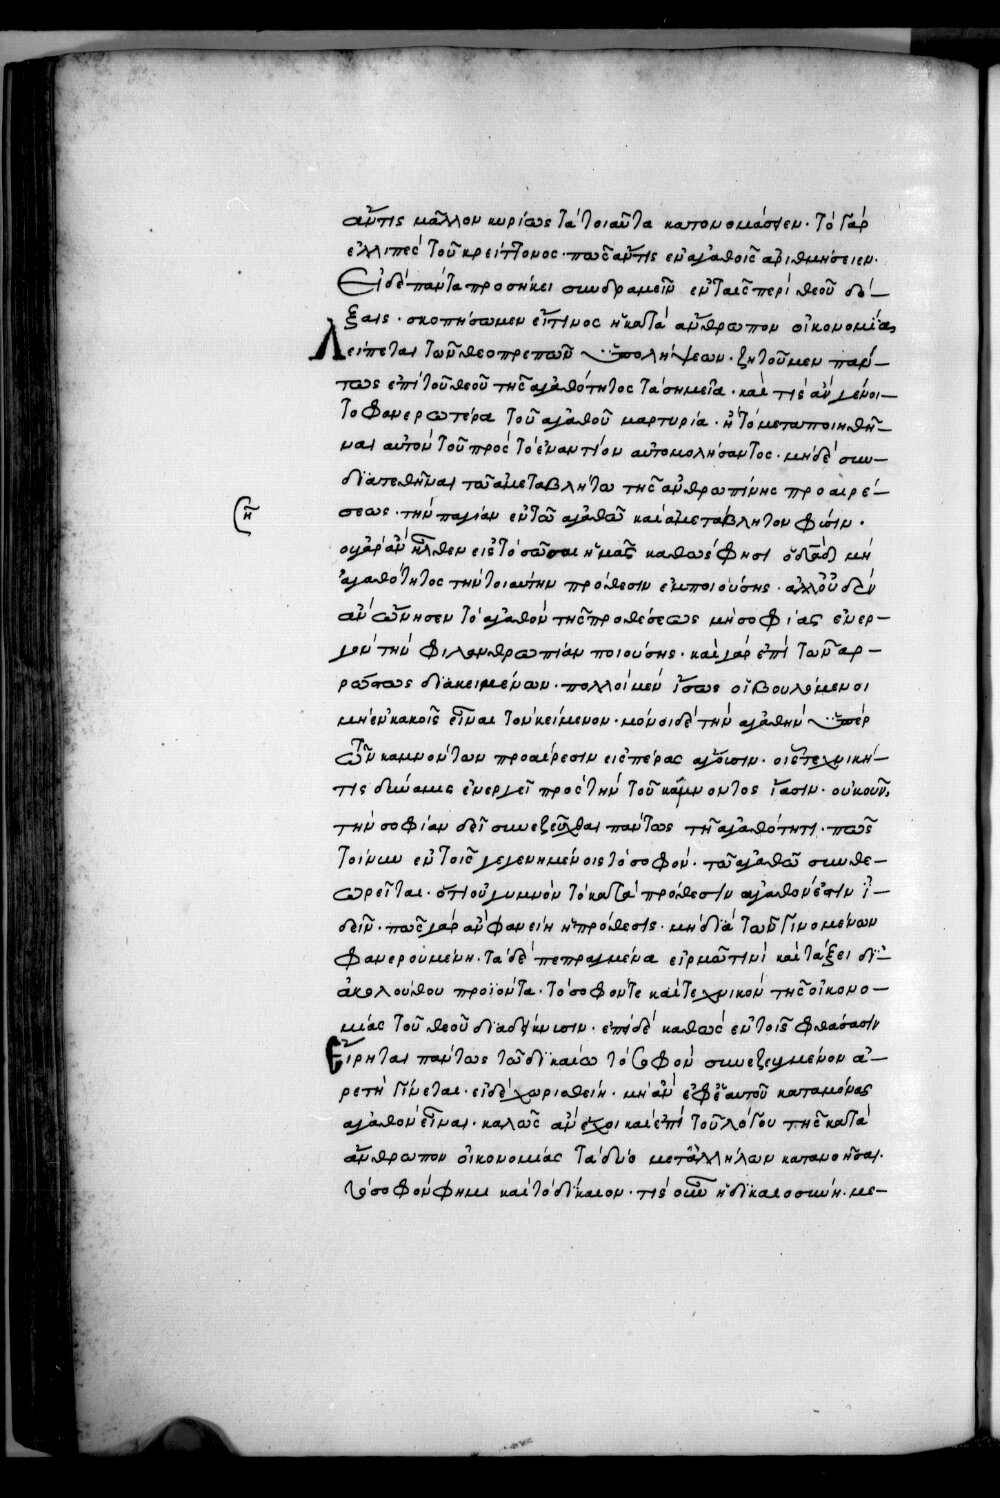 ἄν τις μᾶλλον κυρίως τὰ τοιαῦτα κατονομάσειεν· τὸ γὰρ
ἐλλιπὲς τοῦ κρείττονος· πῶς ἄν τις ἐν ἀγαθοῖς ἀριθμήσειεν·
Εἰ δὲ πάντα προσήκει συνδραμεῖν ἐν ταῖς περὶ θεοῦ δό–
ξαις· σκοπήσωμεν εἴ τινος ἡ κατὰ ἄνθρωπον οἰκονομίας
Λείπεται τῶν θεοπρεπῶν ὑπολήψεων· ζητοῦμεν πάν–
τως ἐπὶ τοῦ θεοῦ τῆς ἀγαθότητος τὰ σημεῖα· καὶ τίς ἂν γένοι–
το φανερωτέρα τοῦ ἀγαθοῦ μαρτυρία· ἢ τὸ μεταποιηθῆ–
ναι αὐτὸν τοῦ πρὸς τὸ ἐναντίον αὐτομολήσαντος· μηδὲ συν–
διατεθῆναι τῶ ἀμεταβλήτω τῆς ἀνθρωπίνης προαιρέ–
σεως· τὴν παγίαν ἐν τῶ ἀγαθῶ καὶ ἀμετάβλητον φύσιν·
(ῆ
οὐ γὰρ ἂν ἦλθεν εἰς τὸ σῶσαι ἡμᾶς καθώς φησι ὁ δαδ μὴ
ἀγαθότητος τὴν τοιαύτην πρόθεσιν ἐμποιούσης· ἀλλ' οὐδὲν
ἂν ὤνησεν τὸ ἀγαθὸν τῆς προθέσεως μὴ σοφίας ἐνερ–
γὸν τὴν φιλανθρωπίαν ποιούσης· καὶ γὰρ ἐπὶ τῶν ἀρ–
ρώστως διακειμένων· πολλοὶ μὲν ἴσως οἱ βουλόμενοι
μὴ ἐν κακοῖς εἶναι τὸν κείμενον· μόνοι δὲ τὴν ἀγαθὴν ὑπὲρ
τῶν καμνόντων προαίρεσιν εἰς πέρας ἄγουσιν· οἷς τεχνική–
τις δύναμις ἐνεργεῖ πρὸς τὴν τοῦ κάμνοντος ἴασιν· οὐκοῦν,
τὴν σοφίαν δεῖ συνεζεῦχθαι πάντως τῆ ἀγαθότητι· πῶς
τοίνυν ἐν τοῖς γεγενημένοις τὸ σοφὸν· τῶ ἀγαθῶ συνθε–
ωρεῖται· ὅτι οὐ γυμνὸν τὸ κατὰ πρόθεσιν ἀγαθὸν ἔστιν ἰ–
δεῖν· πῶς γὰρ ἂν φανείη ἡ πρόθεσις· μὴ διὰ τῶν γινομένων
φανερουμένη· τὰ δὲ πεπραγμένα εἱρμῶ τινὶ καὶ τάξει δι'–
ἀκολούθου προϊόντα· τὸ σοφόν τε καὶ τεχνικὸν τῆς οἰκονο–
μίας τοῦ θεοῦ διαδείκνυσιν· ἐπεὶ δὲ καθὼς ἐν τοῖς φθάσασιν
Εἴρηται πάντως τῶ δικαίω τὸ σοφὸν συνεζευγμένον ἀ–
ρετὴ γίνεται· εἰ δὲ χωρισθείη· μὴ ἂν ἐφ' ἑαυτοῦ καταμόνας
ἀγαθὸν εἶναι· καλῶς ἂν ἔχοι καὶ ἐπὶ τοῦ λόγου τῆς κατὰ
ἄνθρωπον οἰκονομίας τὰ δύο μετ' ἀλλήλων κατανοῆσαι·
τὸ σοφόν φημι καὶ τὸ δίκαιον· τίς οὖν ἡ δικαιοσύνη· με–